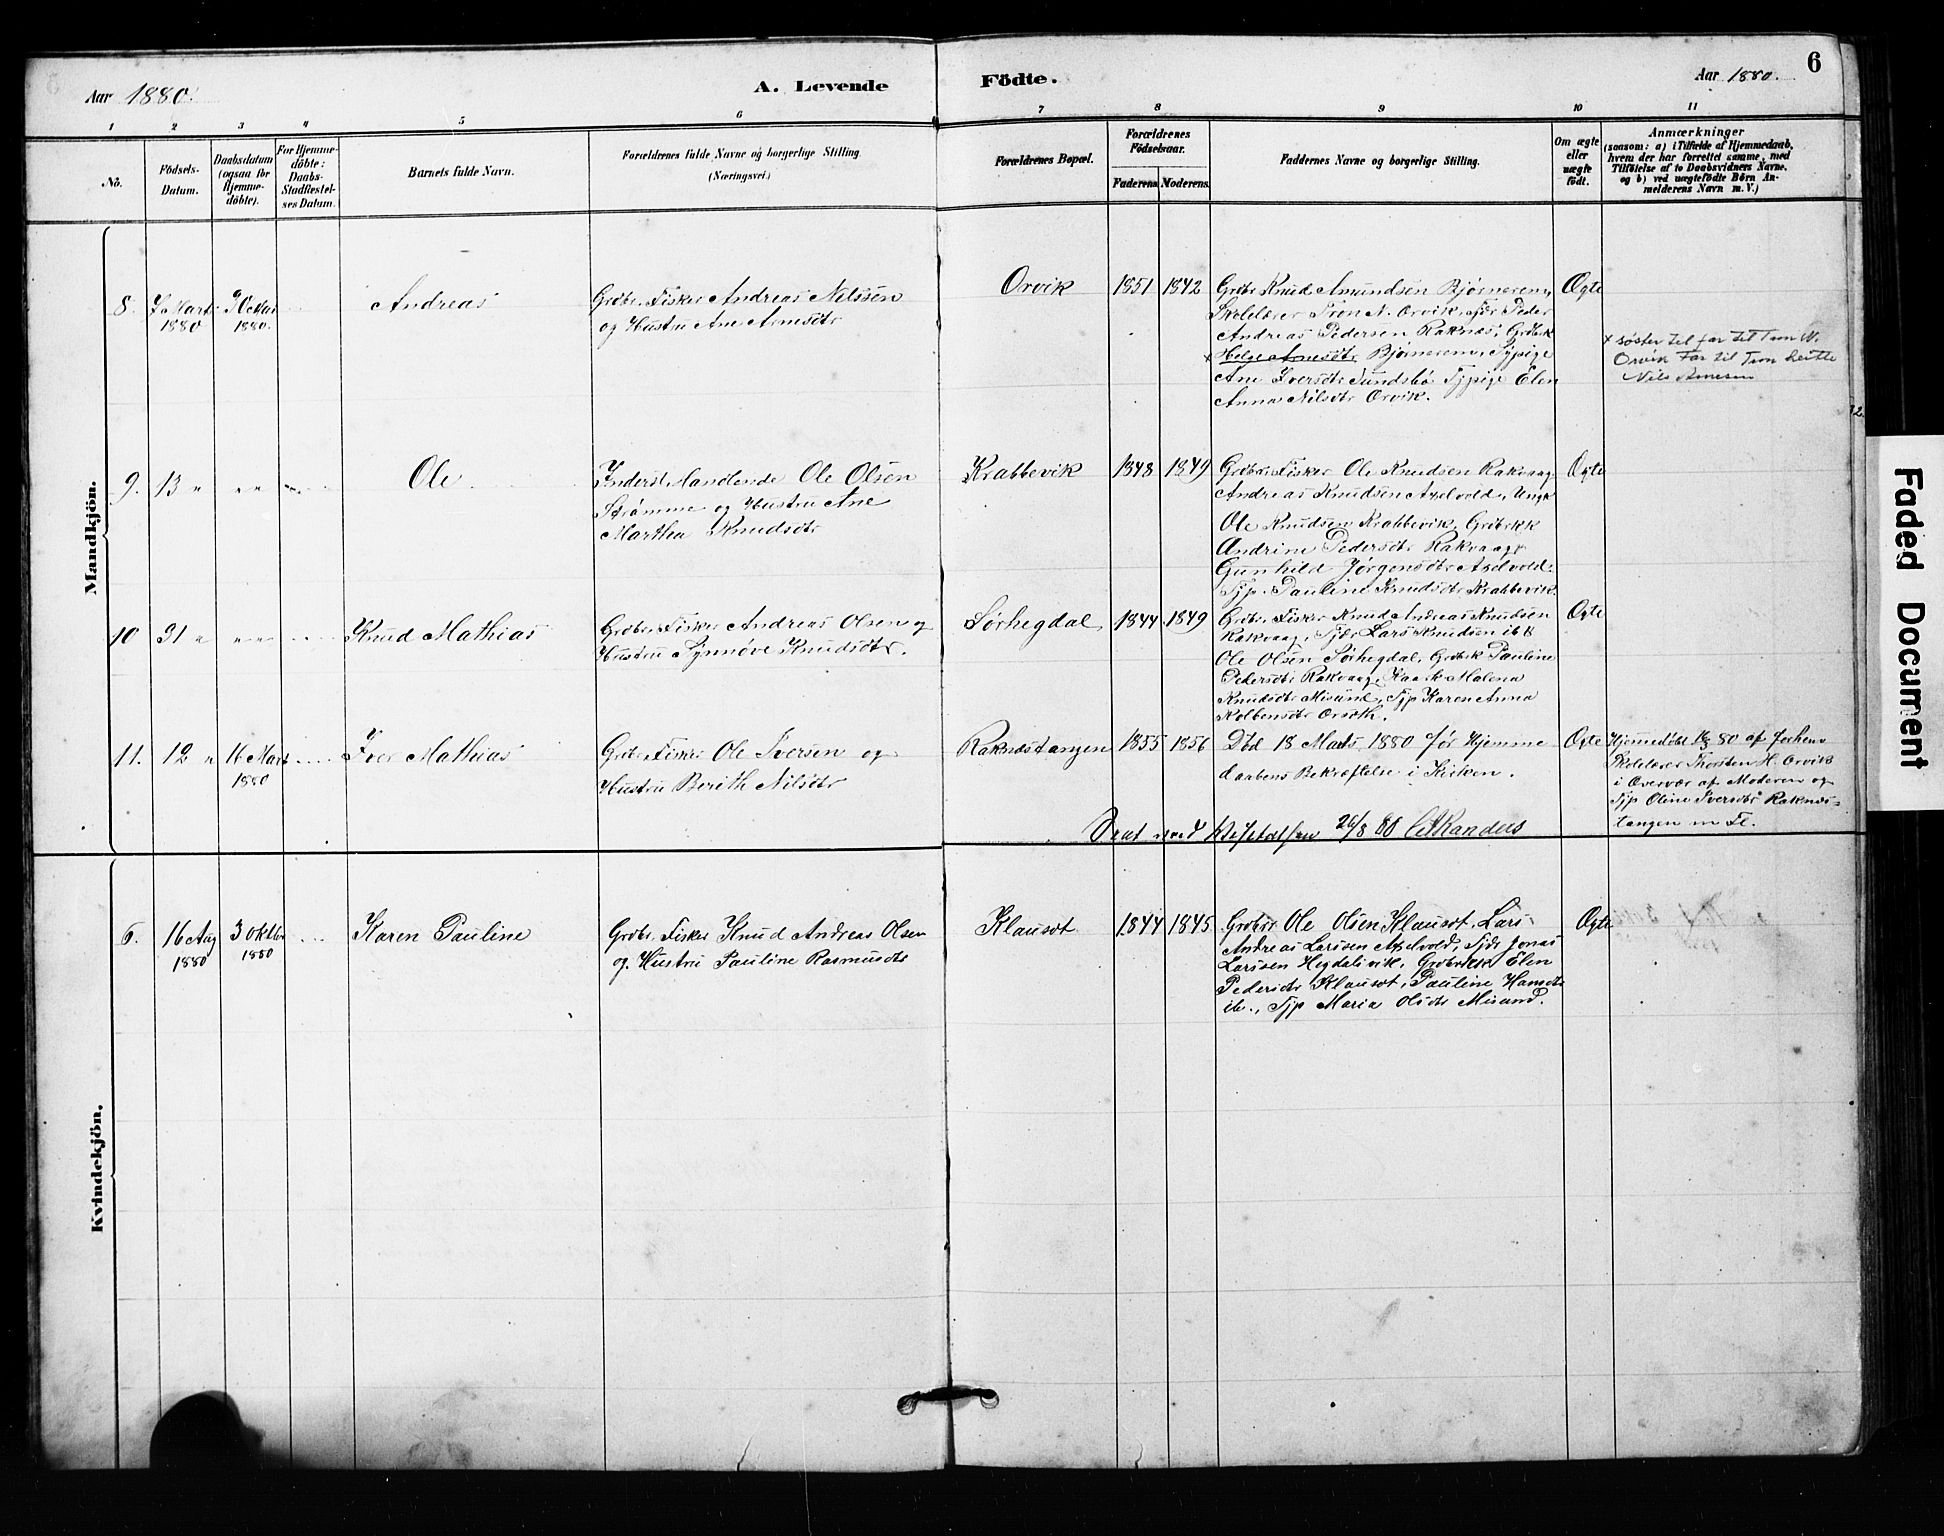 6
Aar 1880.
A. Levende
Födte.
Aar 1880.
1 2 3 4 5 6 7 8 9 10 11
No.
Födsels-
Datum.
Daabsdatum
(ogsaa for
Hjemme-
döbte).
For Hjemme-
döbte:
Daabs-
Stadfæstel-
ses Datum.
Barnets fulde Navn.
Forældrenes fulde Navne og borgerlige Stilling
(Næringsvei.)
Forældrenes Bopæl.
Forældrenes
Födselsaar.
Faderens Moderens
Faddernes Navne og borgerlige Stilling.
Om ægte
eller
uægte
födt.
Anmærkninger
(saasom: a) i Tilfælde af Hjemmedaab,
hvem der har forrettet samme, med
Tilföielse af to Daabsvidners Navne,
og b) ved uægtefödte Börn An-
melderens Navn m. V.)
Mandkjön.
8.
Marts
1880
1880.
Andreas
Grdbr. Fisker Andreas Nilssen
og Hustru Ane Arnesdtr
Orvik
1851 1842
Grdbr Knud Amundsen Bjørnerem,
Skolelærer Tron N. Orvik, Peder
Andreas Pedersen Raknæs, Grdbrk
x Helge Arnesdtr Bjørnerem, Typige
Ane Iversdtr Sundsbø Typige Elen
Anna Nilsdtr Orvik.
Ogte
x søster til far til Tron N.
Orvik Far til Tron heitte
Nils Arnesen
9.
13 "
" "
Ole
Inderst Handlende Ole Olsen
Strømme og Hustru Ane
Martha Knudsdtr
Krabbevik
1848 1849
Grdbr. Fisker Ole Knudsen Rakvaag
Andreas Knudsen Axelvold, Ungk
Ole Knudsen Krabbevik, Grdbrkk
Andrine Pedersdtr Rakvaag
Gunhild Jørgensdtr Axelvold.
Tjp. Pauline Knudsdtr Krabbevik
Ogte
10
31 "
" "
Knud Mathias
Grdbr. Fisker Andreas Olsen og
Hustru Synnøve Knudsdtr.
Sørhegdal
1844 1849
Grdbr. Fisker Knud Andreas Knudsen
Rakvaag, Tjdr Lars Knudsen ibd
Ole Olsen Sørhegdal, Grdbrk Pauline
Pedersdtr Rakvaag, Kaark Malena
Knudsdtr Misund, Tjp Karen Anna
Kolbensdtr Orseth.
Ogte
11.
12 "
16 Mars
1880
Iver Mathias
Grdbr. Fisker Ole Iversen og
Hustru Berith Nilsdtr
Raknæstangen
1855 1856
Død 18 Marts 1880 før Hjemme
daabens Bekræftelse i Kirken.
Ogte
Hjemmedøbt 80 af forhenv
Skolelærer Thorsten H. Orvik
i Overvær af Moderen og
Tjp Oline Iversdtr Raknæs-
tangen m Fl.
26/8 80 Randers
Kvindekjön.
6.
16 Aug
1880
3 Oktbr
1880
Karen Pauline
Grdbr. Fisker Knud Andreas Olsen
og Hustru Pauline Rasmusdtr
Klauset
1844 1845
Grdbr Ole Olsen Klauset, Lars
Andreas Larssen Axelvold, Tjdr Jonas
Larssen Hegdalsvik, Grdbrkk Elen
Pedersdtr Klauset, Pauline Hansdtr
ib., Tjp Maria Olsdtr Misund.
Ogte
Faded Document